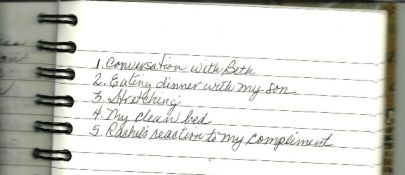 1. Conversation with Beth
2. Eating dinner with my son
3. Stretching
4. My clean bed
5. Rachel's reaction to my compliment